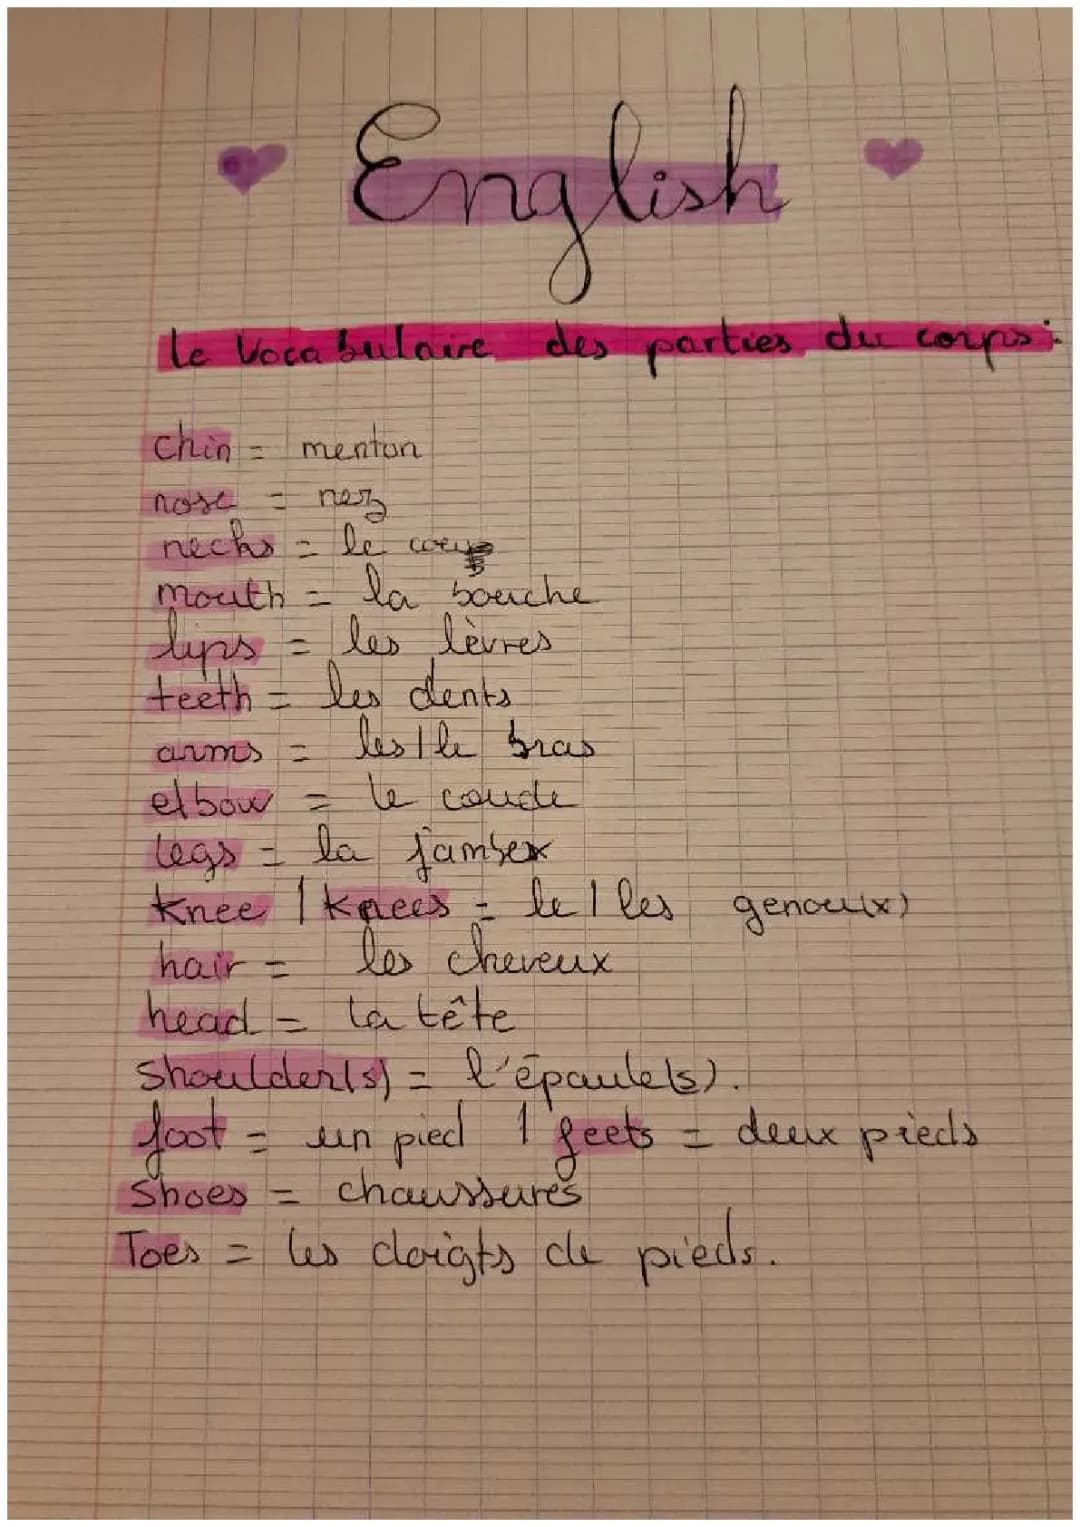 English
le Vocabulaire des parties du corps:
chin = menton
nose = nez
necks = le cou
mouth = la bouche
lips = les lèvres
teeth = les dents
arms = les/le bras
elbow = le coude
legs = la jambex
Knee / Knees = le/les genou(x)
hair = les cheveux
head = la tête
Shoulder(s) = l'épaule(s).
foot = un pied / feets = deux pieds
Shoes = chaussures
Toes = les doigts de pieds.